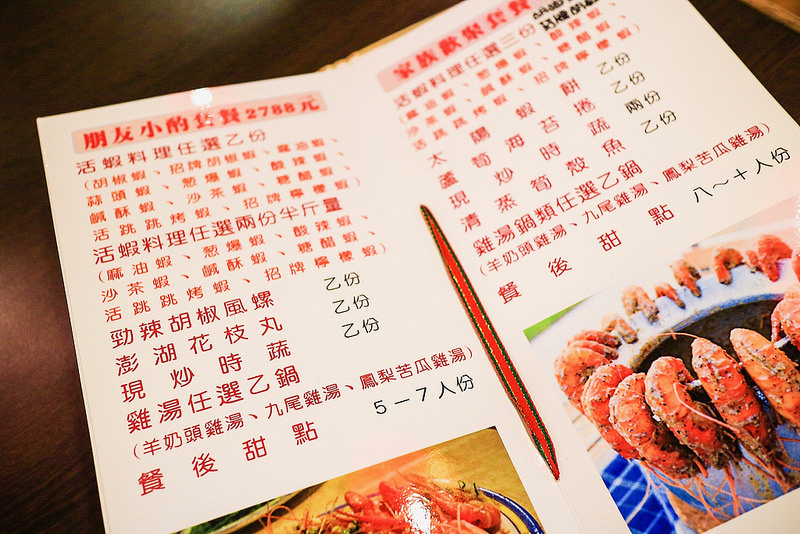 朋友小酌套餐2788元
活蝦料理任選乙份
(胡椒蝦、招牌胡椒蝦、麻油蝦、
蒜頭蝦、蔥爆蝦、酸辣蝦、
鹹酥蝦、沙茶蝦、糖醋蝦、
活跳跳烤蝦、招牌檸檬蝦)
活蝦料理任選兩份半斤量
(麻油蝦、蔥爆蝦、酸辣蝦、
沙茶蝦、鹹酥蝦、糖醋蝦、
活跳跳烤蝦、招牌檸檬蝦)
勁辣胡椒風螺 乙份
澎湖花枝丸 乙份
現炒時蔬 乙份
雞湯任選乙鍋
(羊奶頭雞湯、九尾雞湯、鳳梨苦瓜雞湯)
餐後甜點 5－7人份
家族歡聚套餐
活蝦料理任選三份
蔥爆蝦、酸辣蝦、
沙茶蝦、鹹酥蝦、糖醋蝦、
活跳跳烤蝦、招牌檸檬蝦)
太陽蝦餅 乙份
蘆筍海苔捲 乙份
現炒時蔬 兩份
清蒸筍殼魚 乙份
雞湯鍋類任選乙鍋
(羊奶頭雞湯、九尾雞湯、鳳梨苦瓜雞湯)
餐後甜點 八～十人份